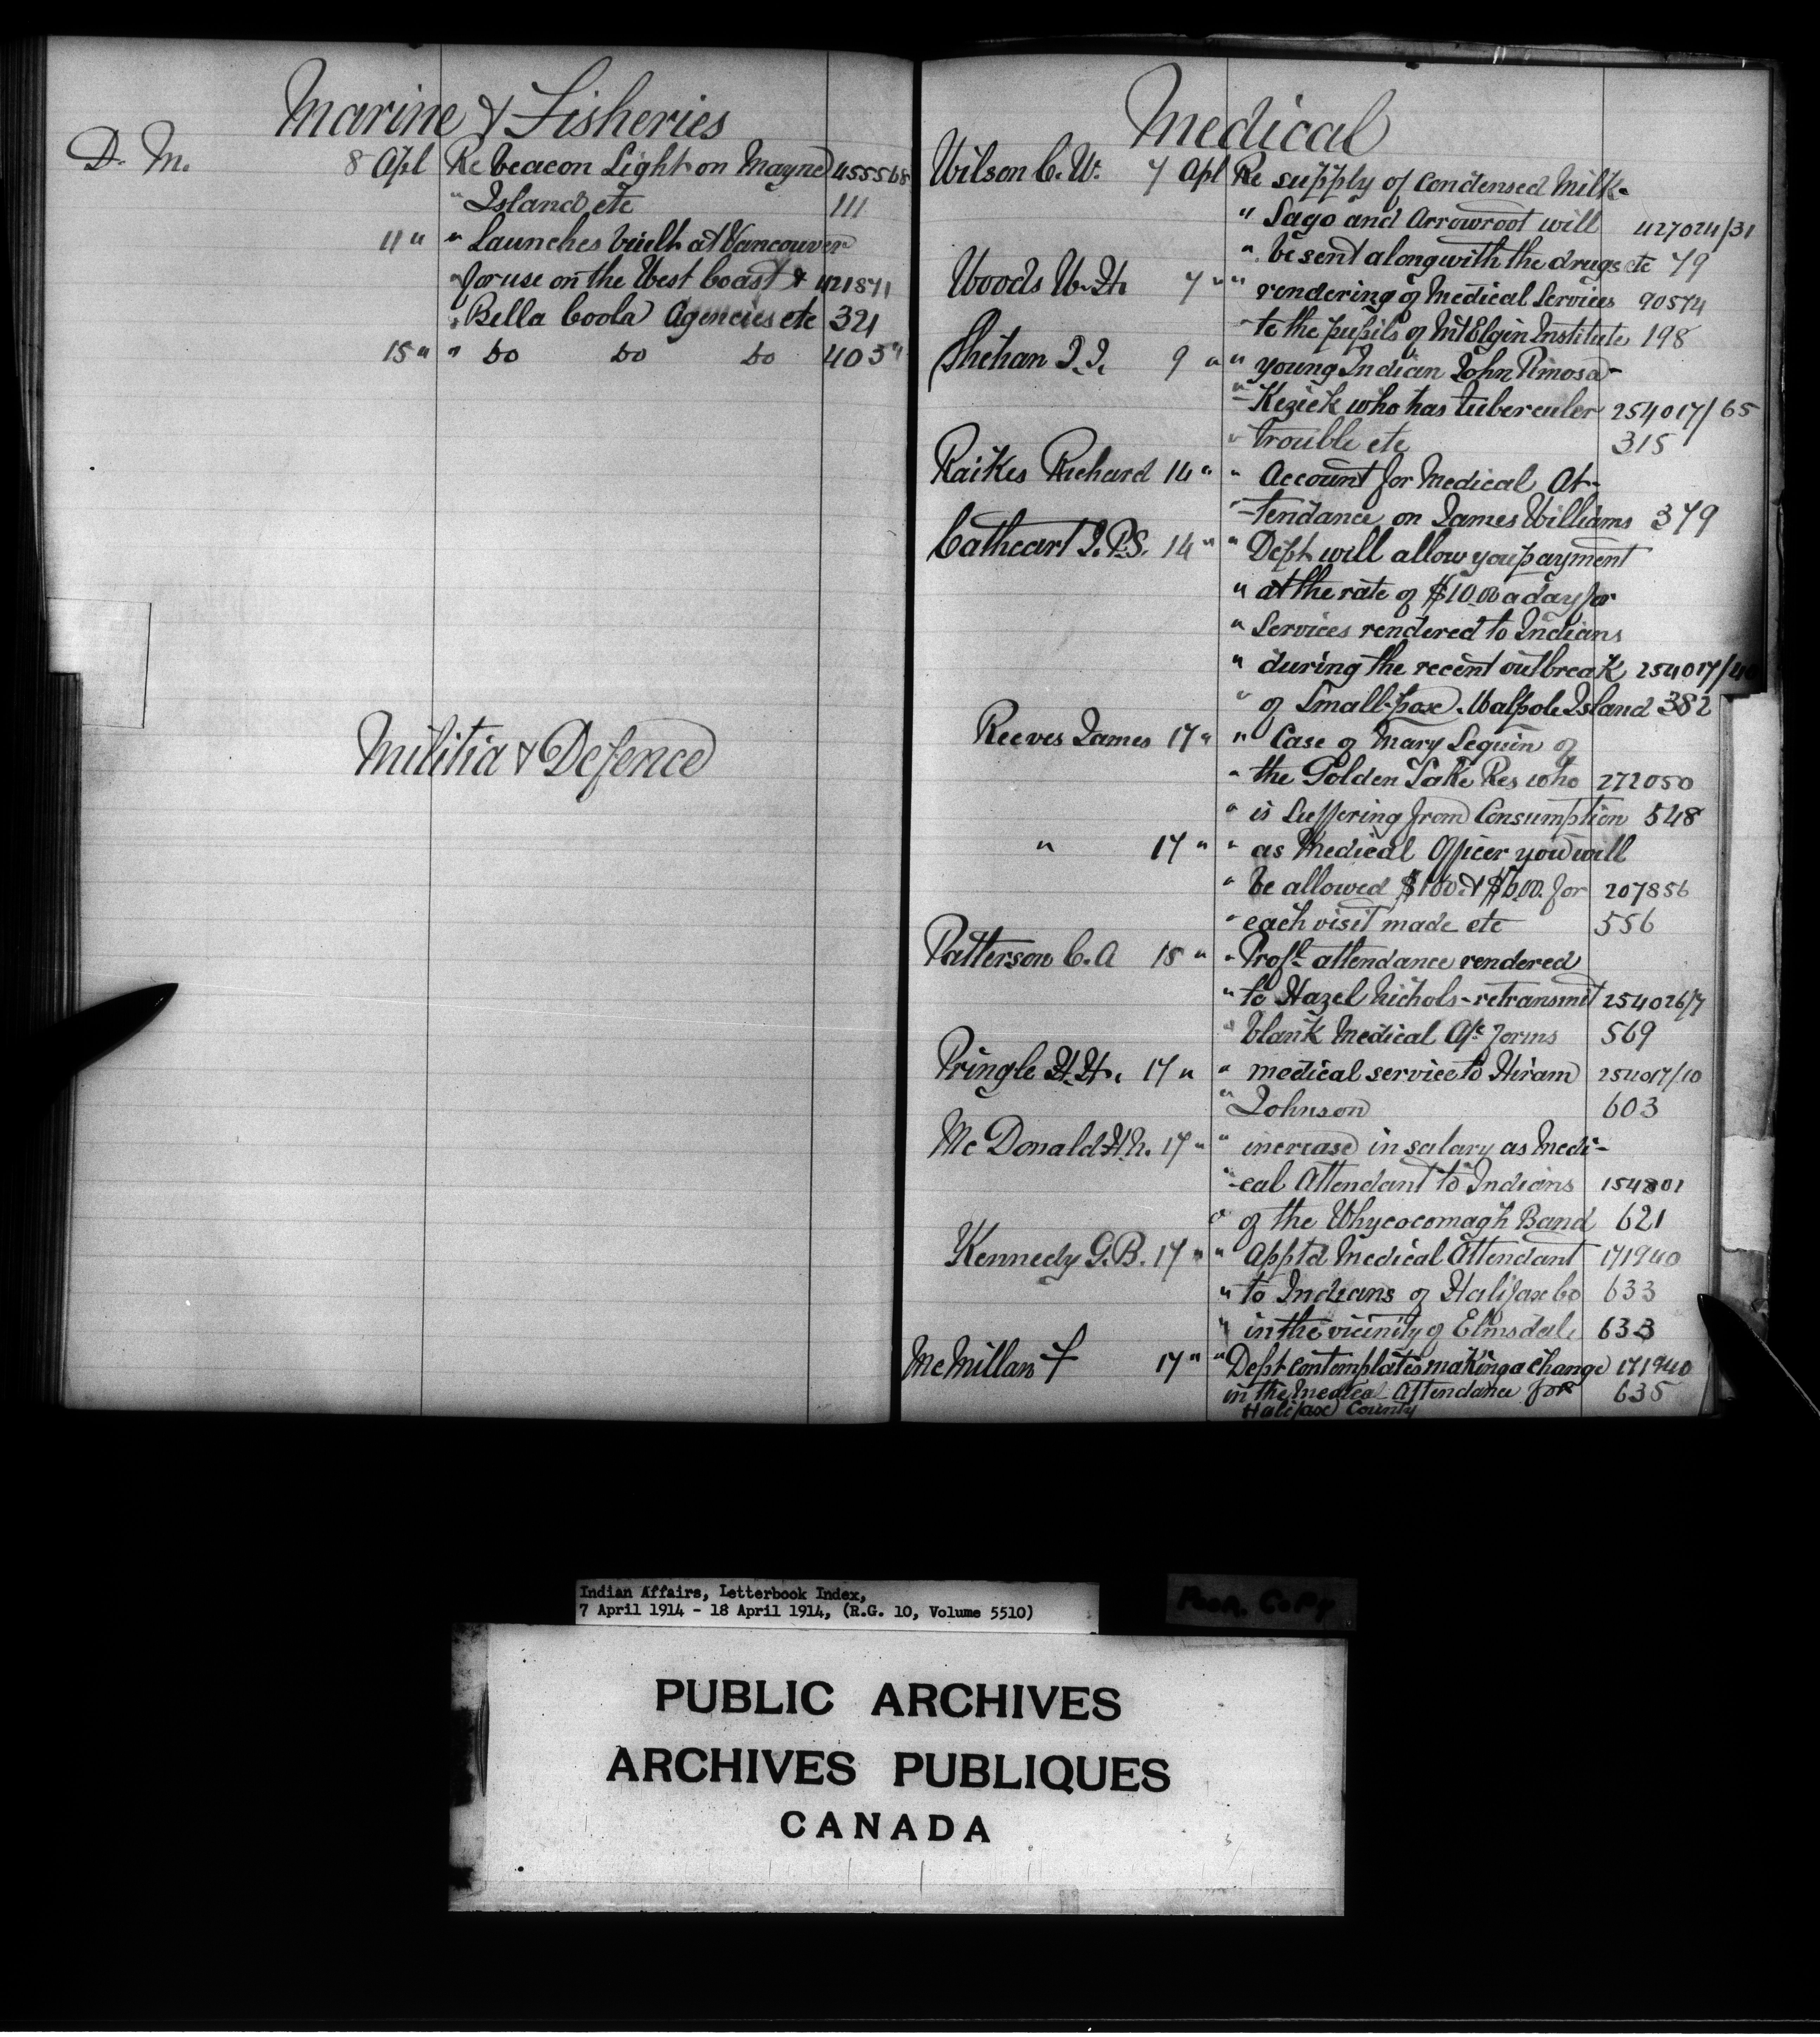 Marine & Fisheries
D. M. 8 Apl Re beacon Light on Mayne 455568
" Island etc 111
11 " " Launches built at Vancouver
" for use on the West Coast & 421871
" Bella Coola Agencies etc 321
15 " " Do Do Do 403 "
Militia & Defence
Medical
Wilson C. W. 7 Apl Re supply of Condensed Milk-
" Sago and Arrowroot will 427024/31
" be sent along with the drugs etc 79
Woods W. H. 7 " " rendering of Medical Services 90574
- to the pupils of Mt Elgin Institute 198
Shehan J. J. 9 " " young Indian John Pimosa-
" -Kezick who has tubercular 254017/65
" trouble etc 315
Raikes Richard 14 " " Account for Medical At-
" -tendance on James Williams 379
Cathcart J. P. S. 14 " " Dept will allow you payment
" at the rate of $10.00 a day for
" Services rendered to Indians
" during the recent outbreak 254017/
" of Small-pox. Walpole Island 382
Reeves James 17 " " Case of Mary Sequin of
" the Golden Lake Res who 272050
" is Suffering from Consumption 548
" 17 " " as Medical Officer you will
" be allowed $100 & $6.00. for 207856
" each visit made etc 556
Patterson C. A 15 " " Profl. attendance rendered
" to Hazel Nichols - retransmit 254026/7
" blank Medical A/c forms 569
Pringle H. H. 17 " " medical service to Hiram 254017/10
" Johnson 603
Mc Donald H. N. 17 " " increase in salary as Medi-
" -cal Attendant to Indians 154801
" of the Whycocomagh Band 621
Kennedy G. B. 17 " " App'td Medical Attendant 171940
" to Indians of Halifax Co 633
" in the vicinity of Elmsdale 633
McMillan F 17 " " Dept contemplates making a change 171940
in the Medical Attendance for 635
Halifax County
Indian Affairs, Letterbook Index,
7 April 1914 - 18 April 1914, (R.G. 10, Volume 5510)
Poor Copy
PUBLIC ARCHIVES
ARCHIVES PUBLIQUES
CANADA